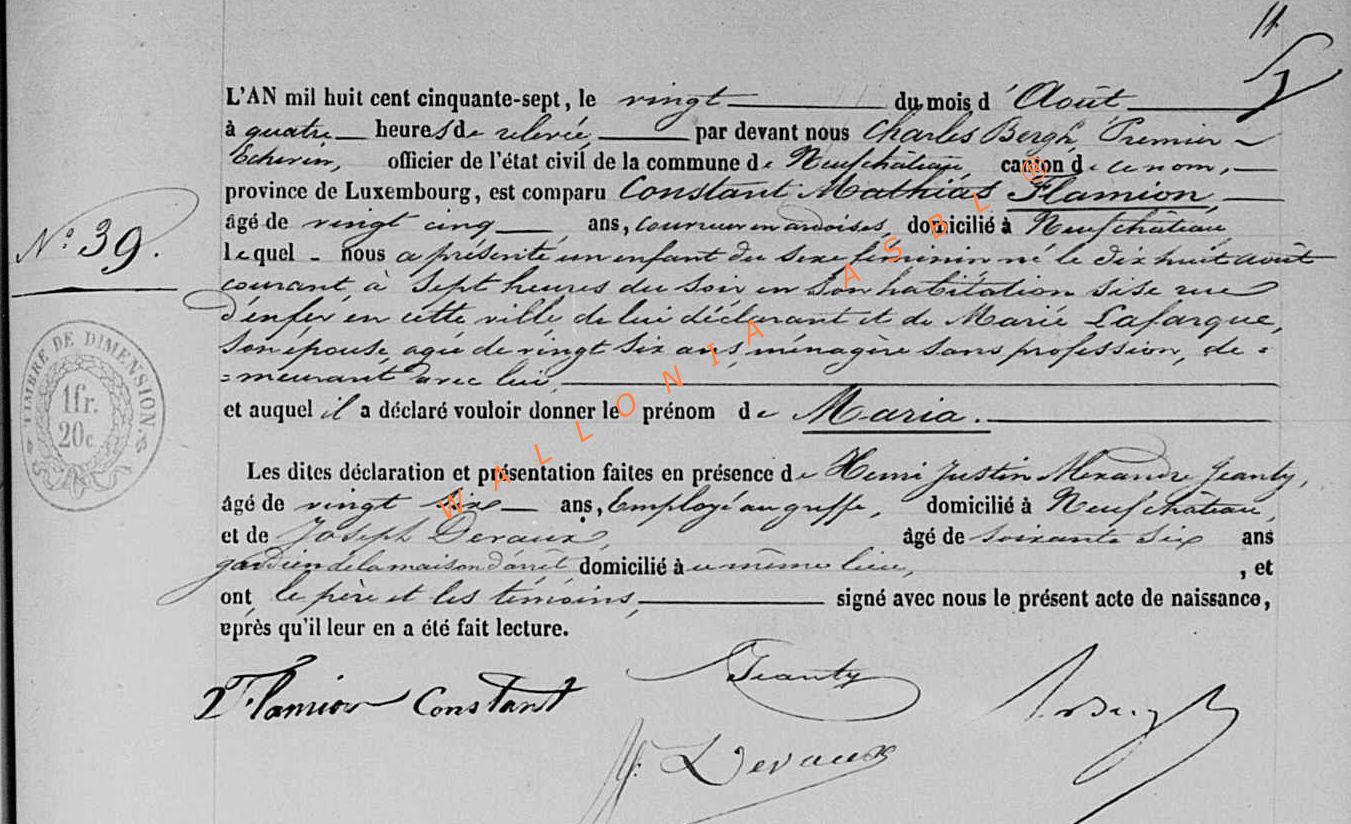 11
L'AN mil huit cent cinquante-sept, le vingt du mois d'Août
à quatre heures de relevée, par devant nous Charles Bergh, Premier
Echevin, officier de l'état civil de la commune de Neufchâteau, canton de ce nom,
province de Luxembourg, est comparu Constant Mathias Flamion,
âgé de vingt cinq ans, couvreur en ardoises, domicilié à Neufchâteau,
N° 39.
lequel nous a présenté un enfant du sexe féminin né le dix huit août
courant, à sept heures du soir en son habitation sise rue
d'enfer en cette ville de lui déclarant et de Marie Lafarque,
son épouse, agée de vingt six ans, ménagère sans profession, de=
=meurant avec lui,
et auquel il a déclaré vouloir donner le prénom de Maria.
TIMBRE DE DIMENSION
1fr.
20c
Les dites déclaration et présentation faites en présence de Henri Justin Alexandre Jeanty,
âgé de vingt six ans, Employé au greffe, domicilié à Neufchâteau,
et de Joseph Devaux, âgé de soixante six ans
gardien de la maison d'arrêt domicilié à ce même lieu, , et
ont le père et les témoins, signé avec nous le présent acte de naissance,
après qu'il leur en a été fait lecture.
Flamion Constant
Jeanty
J. Devaux
WALLONIA ASBL ®